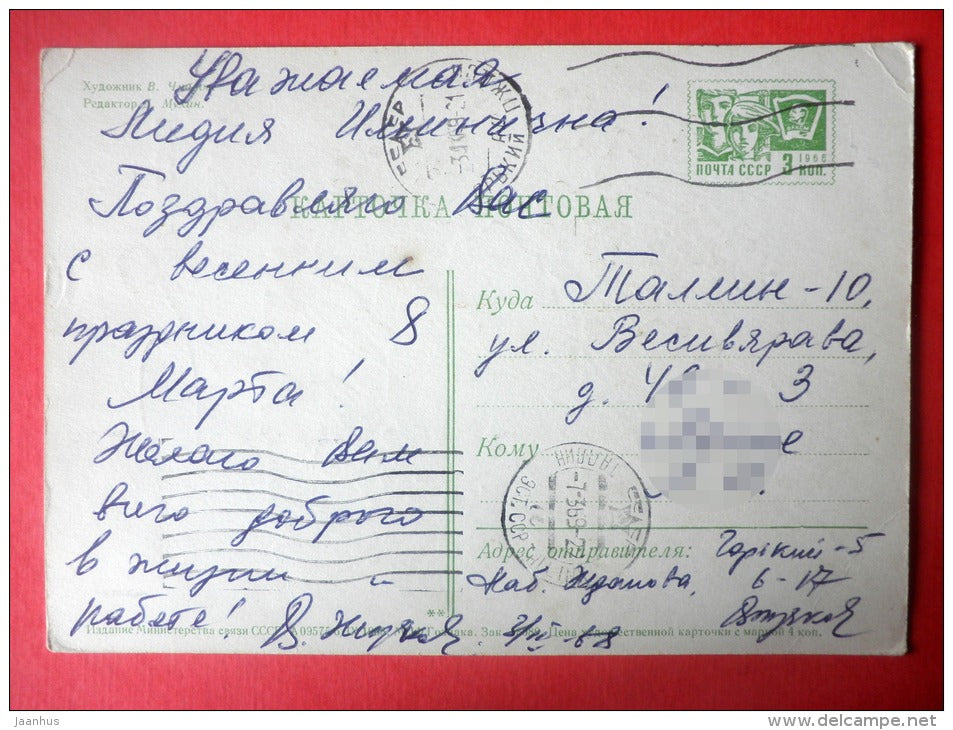 Художник В.
Редактор
Уважаемая
Лидия Ильинична!
Поздравляю Вас
с весенним
праздником 8
Марта!
Желаю Вам
всего доброго
в жизни и
работе!
КАРТОЧКА ПОЧТОВАЯ
ПОЧТА СССР 3 КОП.
1966
СССР
Куда Таллин-10,
ул. Весивярава,
д. 3
Кому
ТАЛЛИН
ЭСТ. ССР
Адрес отправителя: Горький-5
Наб. Жданова, 6-17
**
Издание Министерства связи СССР Цена художественной карточки с маркой 4 коп.
Jaanhus
www.delcampe.net